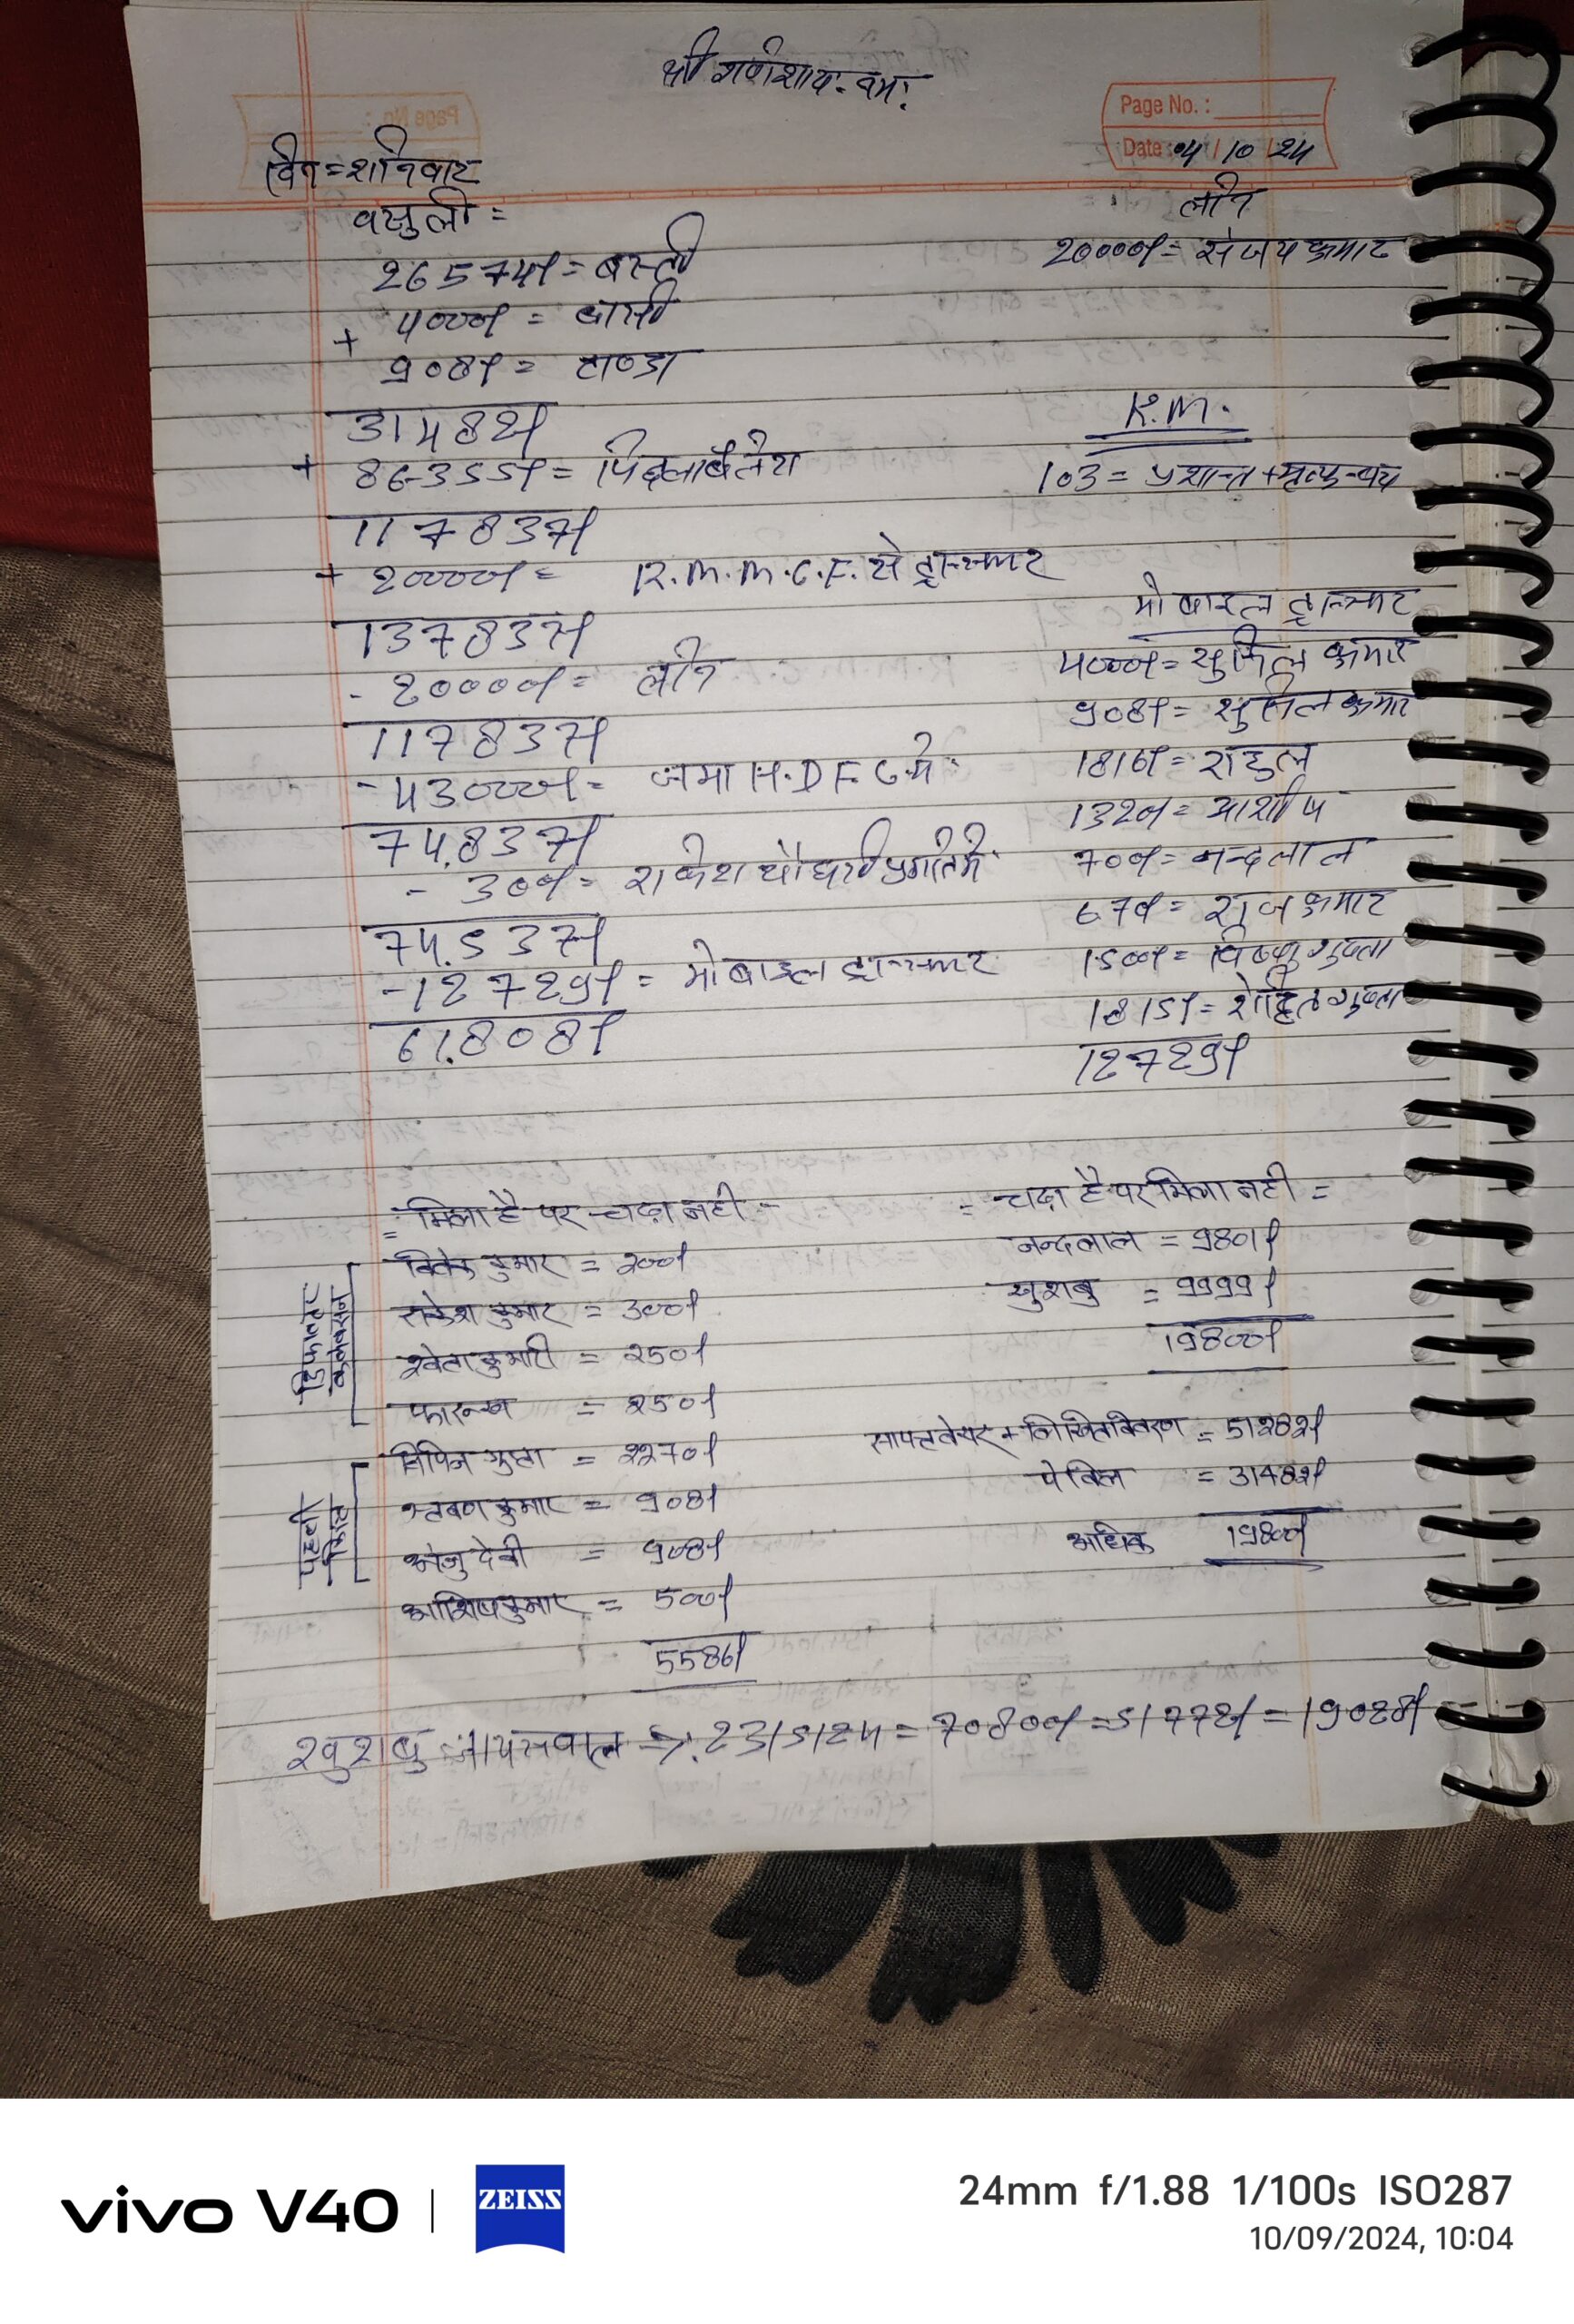 श्री गणेशाय नमः
Page No. :
Date : 04/10/24
दिन = शनिवार
वसुली =
26574/- = बस्ती
+ 4000/- = बासी
908/- = टाण्डा
31482/-
+ 86355/- = पिछला बैलेंश
117837/-
+ 20000/- = R.M.M.C.F. से ट्रान्सफर
137837/-
- 20000/- = लोन
117837/-
- 43000/- = जमा H.D.F.C. मे
74,837/-
- 300/- = राकेश चौधरी प्रगति मे
74,537/-
- 12729/- = मोबाइल ट्रान्सफर
61,808/-
लोन
20000/- = संजय कुमार
K.M.
103 = प्रशान्त + मृत्युन्जय
मोबाइल ट्रान्सफर
4000/- = सुनिल कुमार
908/- = सुनिल कुमार
1816/- = राहुल
1320/- = आशीष
700/- = नन्दलाल
670/- = राज कुमार
1500/- = विष्णु गुप्ता
1815/- = रोहित गुप्ता
12729/-
= मिला है पर चढ़ा नही =
डिफाल्टर कलेक्सन
विवेक कुमार = 200/-
राकेश कुमार = 300/-
श्वेता कुमारी = 250/-
फारुख = 250/-
पहली किस्त
विपिन गुप्ता = 2270/-
श्रवण कुमार = 908/-
अंजु देवी = 908/-
आशिष कुमार = 500/-
5586/-
= चढ़ा है पर मिला नही =
नन्दलाल = 9801/-
खुशबु = 9999/-
19800/-
साफ्टवेयर + लिखित विवरण = 51282/-
पेबिल = 31482/-
अधिक 19800/-
खुशबु जायसवाल => 23/5/24 = 70800/- = 51772/- = 19028/-
vivo V40
ZEISS
24mm f/1.88 1/100s ISO287
10/09/2024, 10:04